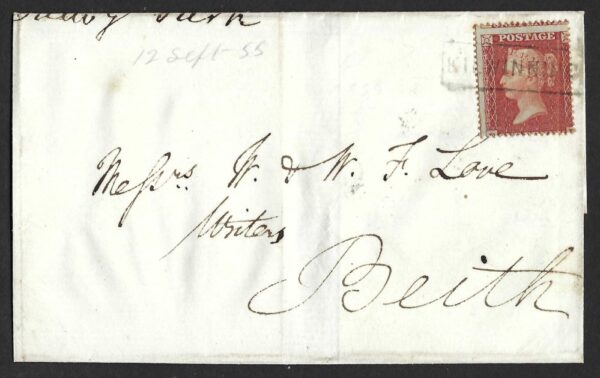 12 Sept 55
POSTAGE
KILWINNING
Messrs. W. & W. F. Love
Writers
Beith